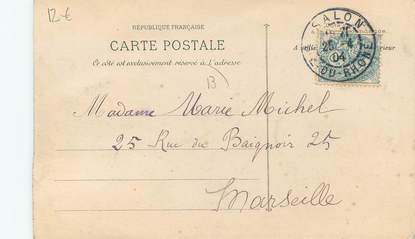 12 €
RÉPUBLIQUE FRANÇAISE
CARTE POSTALE
Ce côté est exclusivement réservé à l'adresse
SALON
25
04
DU-RHONE
B
Madame Marie Michel
25 Rue du Baignoir 25
Marseille